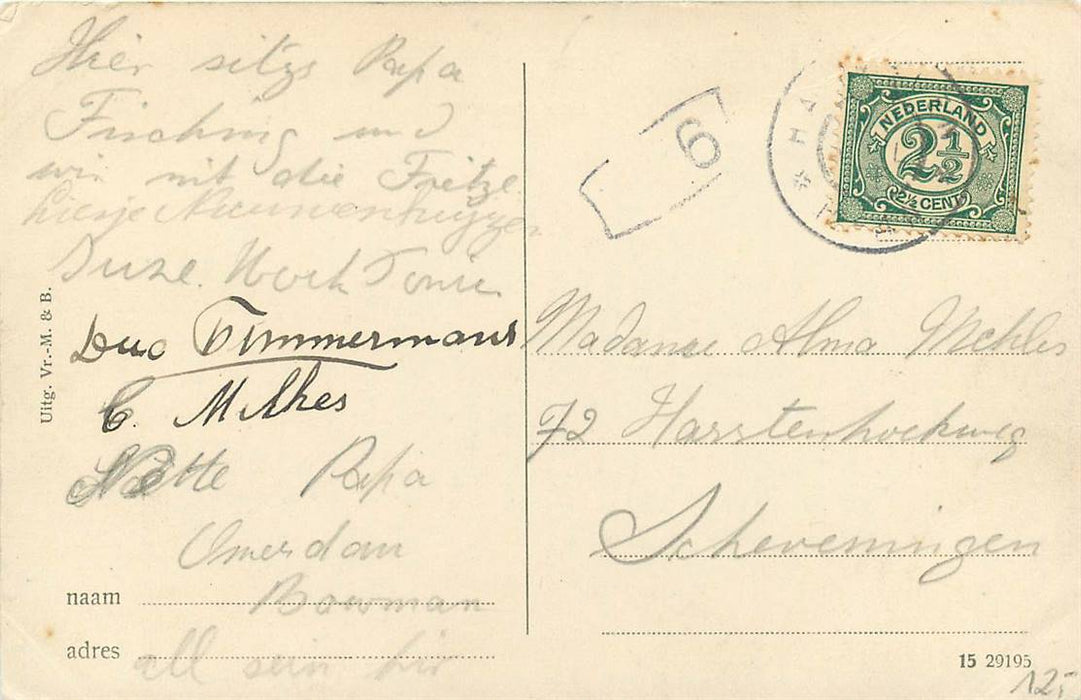 Hier sitzs Papa
Fisching und
wir mit die Fritze
Liesje Nieuwenhuyzen
Suze. Work Tonie
Duo Timmermans
C. Milhes
Nette Papa
Omerdam
naam Bowman
adres all sein hir
Uitg. Vr.-M. & B.
6
NEDERLAND
2½
2½ CENT
Madame Alma Mehles
72 Harstenhoekweg
Scheveningen
15 29195
125